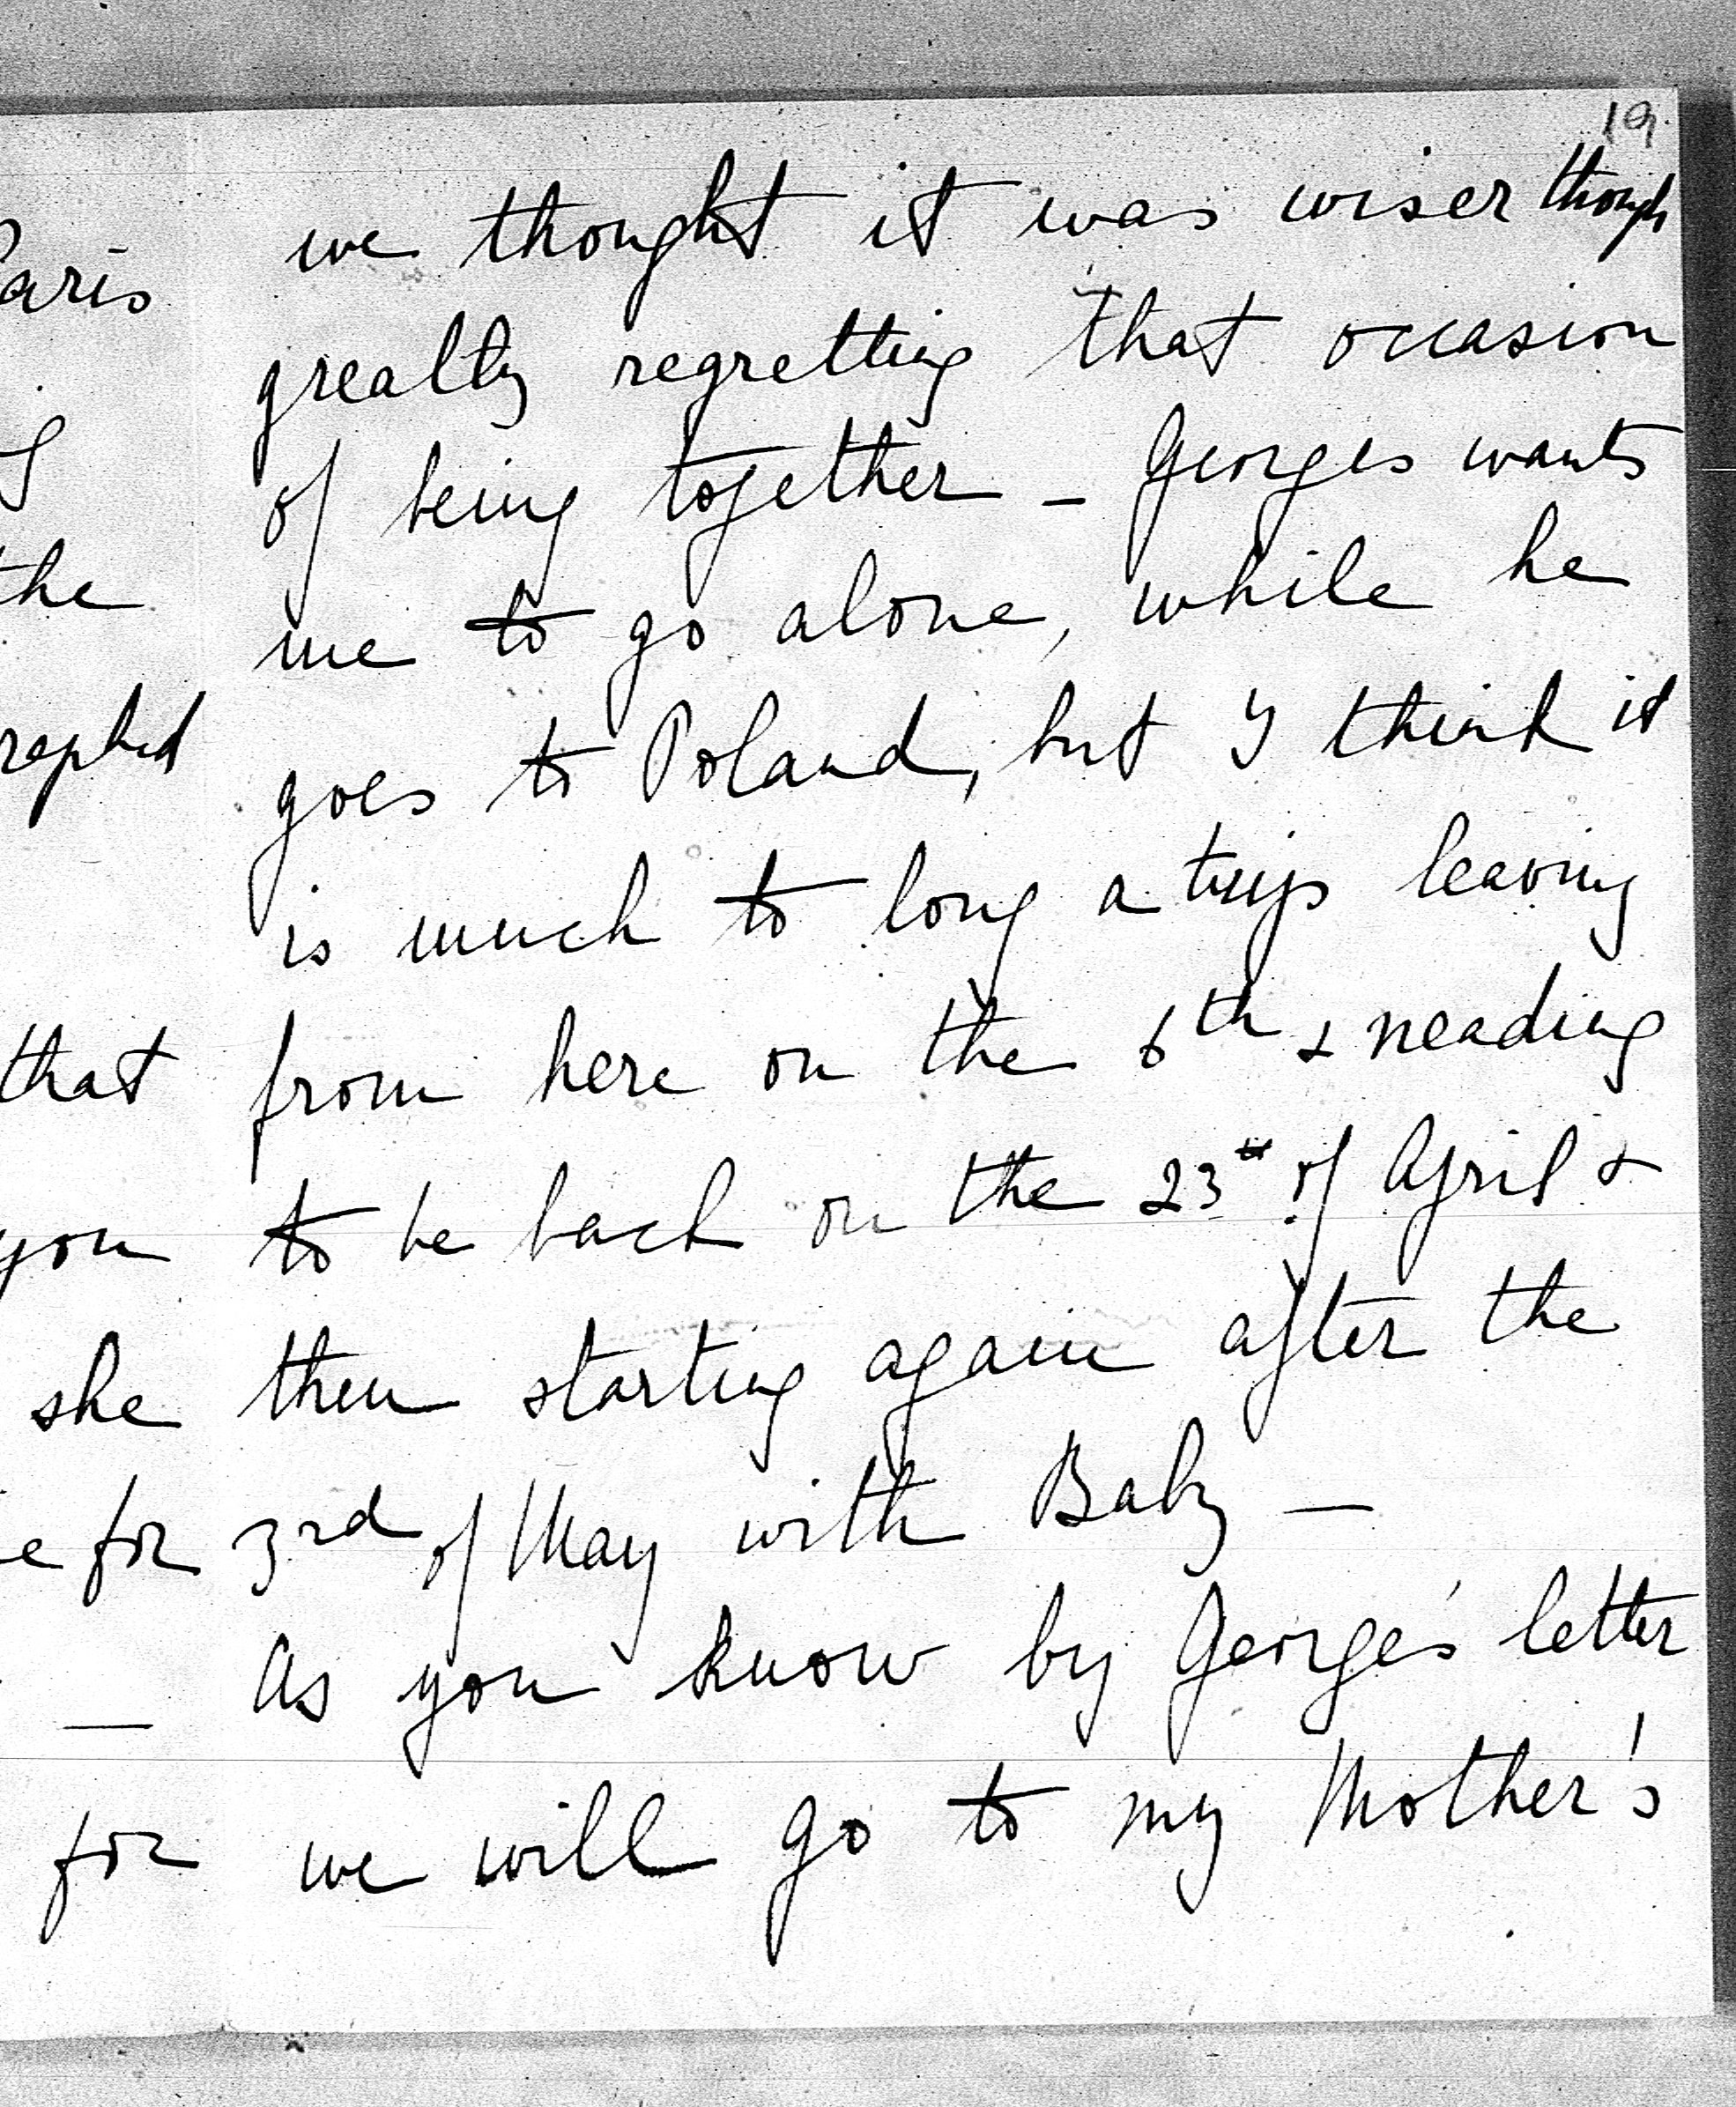 19.
we thought it was wiser though
grealty regretting that occasion
of being together _ Georges wants
me to go alone, while he
goes to Poland, but I think it
is much to long a trip leaving
from here on the 6th & neading
to be back on the 23d of April &
then starting again after the
3rd of May with Baby —
As you know by George's letter
we will go to my Mother's
aris
the
raphed
that
you
she
e for
—
for